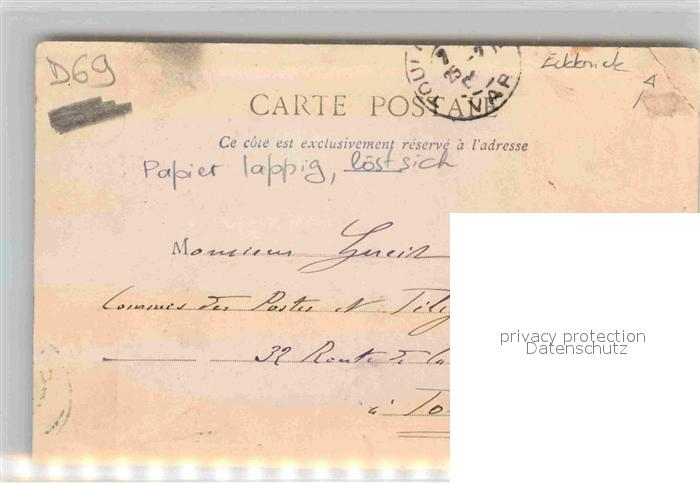 D69
Eckknick
CARTE POSTALE
VAR
Ce côté est exclusivement réservé à l'adresse
Papier lappig, löst sich
Monsieur
Commis des Postes et
32 Route de la
à To
privacy protection
Datenschutz